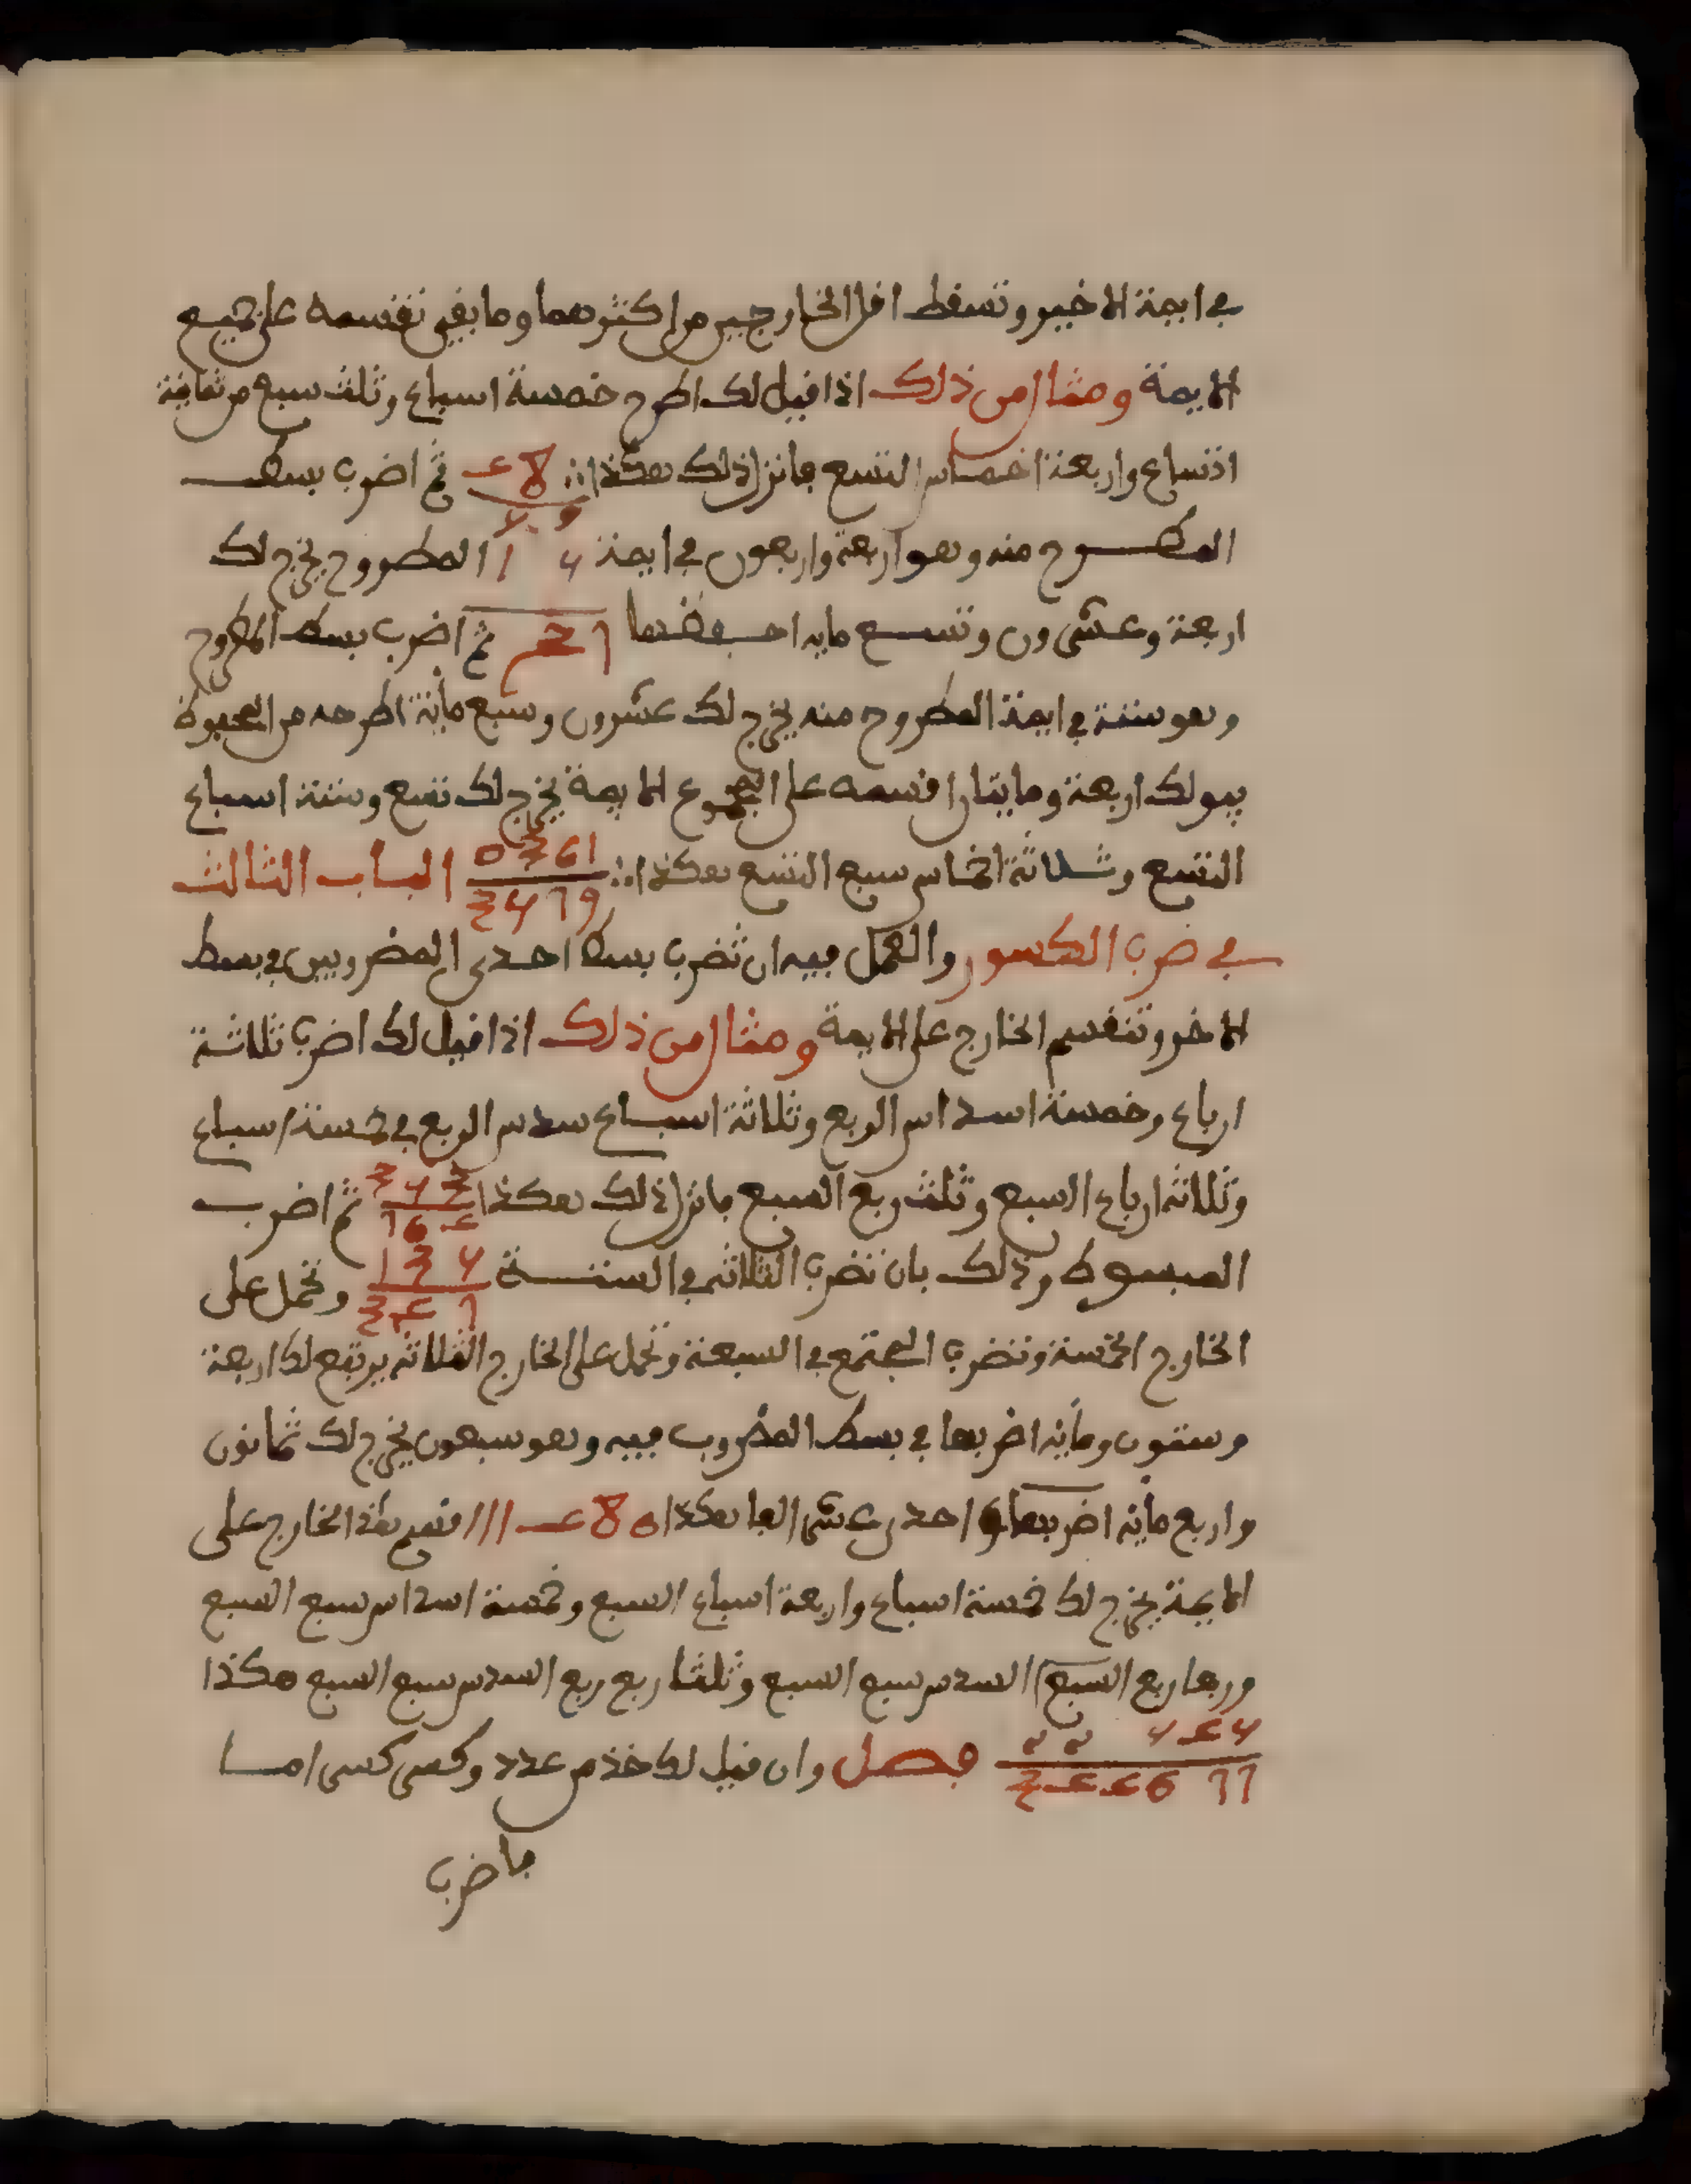 في ايمة الاخير وتسقط اقل الخارجين من اكثرهما وما بقي تقسمه على جميع
الايمة ومثال من ذلك اذا قيل لك اطرح خمسة اسباع وثلث سبع من ثمانية
اتساع واربعة اخماس التسع فانزل ذلك هكذا ثم اضرب بسط
المطروح منه وهو اربعة واربعون في ايمة المطروح يخرج لك
اربعة وعشرون وتسع مايه احفظها ثم اضرب بسط المطروح
وهو ستة في ايمة المطروح منه يخرج لك عشرون وسبع مائة اطرحه من المحبوظ
يبو لك اربعة ومايتان اقسمه على المجموع الايمة يخرج لك تسع وستة اسباع
التسع وثلاثة اخماس سبع التسع هكذا الباب الثالث
في ضرب الكسور والعمل فيه ان تضرب بسط احدى المضروبين في بسط
الاخر وتقسم الخارج على الايمة ومثال من ذلك اذا قيل لك اضرب ثلاثة
ارباع وخمسة اسداس الربع وثلاثة اسباع سدس الربع في خمسة اسباع
وثلاثه ارباع السبع وثلث ربع السبع فانزل ذلك هكذا ثم اضرب
المبسوط وذلك بان تضرب الثلاثه في الستة وتحمل على
الخارج الخمسة وتضرب المجتمع في السبعة وتحمل على الخارج الثلاثه يرتفع لك اربعة
وستون ومأيه اضربها في بسط المضروب فيه وهو سبعون يخرج لك ثمانون
واربع مأيه احدى عشر الفا هكذا فقسم هذا الخارج على
الايمة يخرج لك خمسة اسباع واربعة اسباع السبع وخمسة اسداس سبع السبع
وربعا ربع السبع السدس سبع السبع وثلثا ربع ربع السدس سبع السبع هكذا
فصل وان قيل لك خذ من عدد وكسر كسرا ما
فاضرب